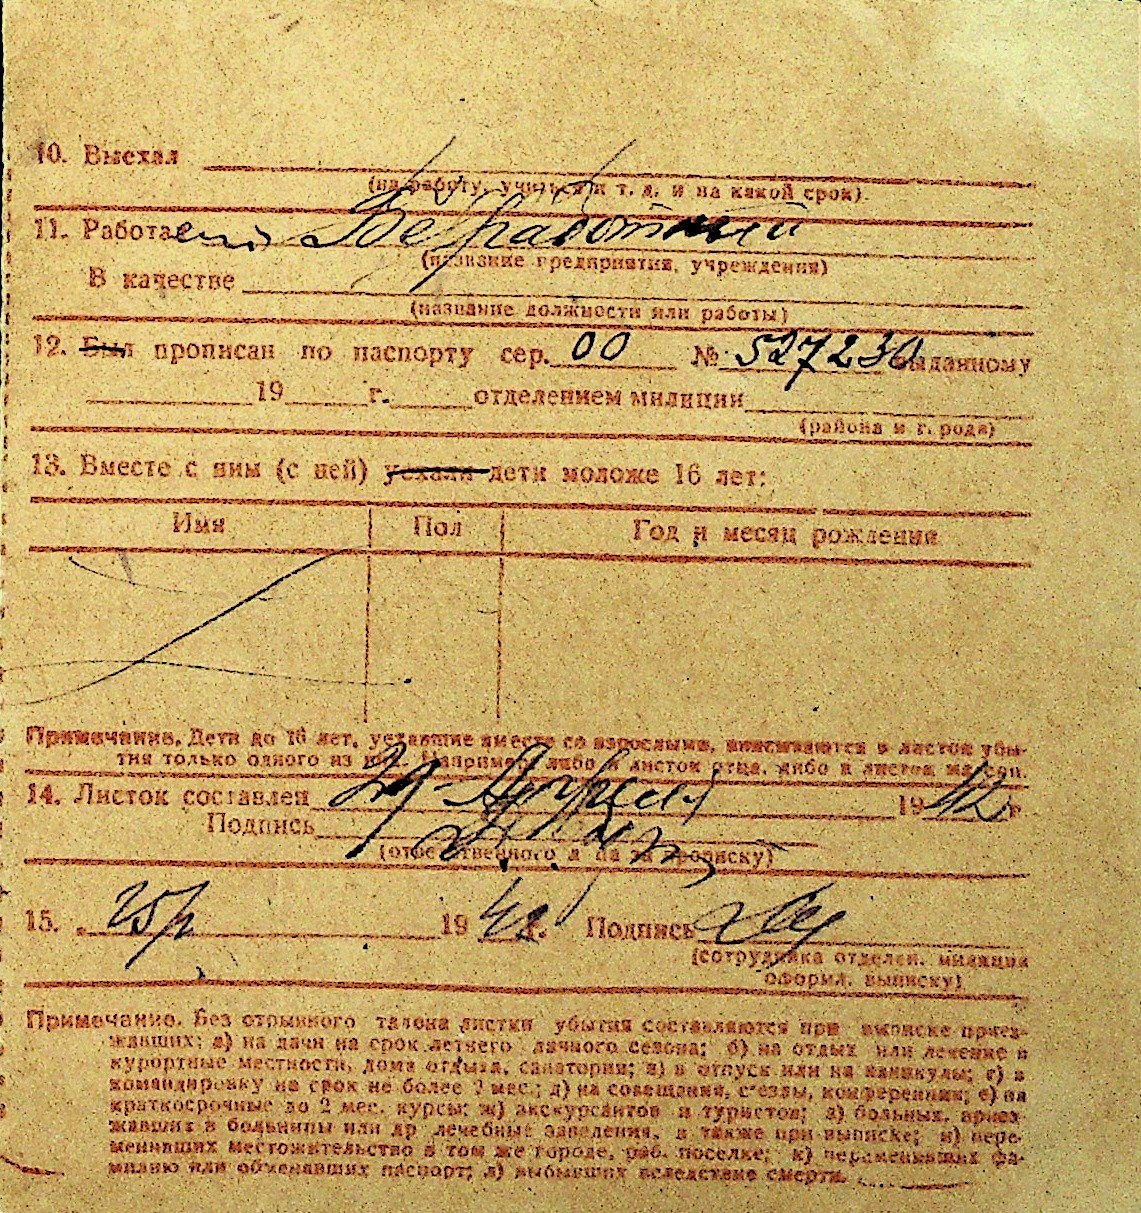 10. Выехал
(на работу, учиться и т. д. и на какой срок).
11. Работает Безработный
(название предприятия, учреждения)
В качестве
(название должности или работы)
12. Был прописан по паспорту сер. 00 № 527230 выданному
19 г. отделением милиции
(района и города)
13. Вместе с ним (с ней) уехали дети моложе 16 лет:
Имя Пол Год и месяц рождения
Примечание. Дети до 16 лет, уехавшие вместе со взрослыми, вписываются в листок убы-
тия только одного из них. Например: либо в листок отца, либо в листок матери.
14. Листок составлен 1942 г.
Подпись
(ответственного л-ца за прописку)
15. 25/ 1942 г. Подпись
(сотрудника отделен. милиции
оформл. выписку)
Примечание. Без отрывного талона листки убытия составляются при выписке приез-
жавших: а) на дачи на срок летнего дачного сезона; б) на отдых или лечение в
курортные местности, дома отдыха, санатории; в) в отпуск или на каникулы; г) в
командировку на срок не более 2 мес.; д) на совещания, с'езды, конференции; е) на
краткосрочные до 2 мес. курсы; ж) экскурсантов и туристов; з) больных, приез-
жавших в больницы или др лечебные заведения, а также при выписке; и) пере-
менивших местожительство в том же городе, раб. поселке; к) переменивших фа-
милию или обменявших паспорт; л) выбывших вследствие смерти.